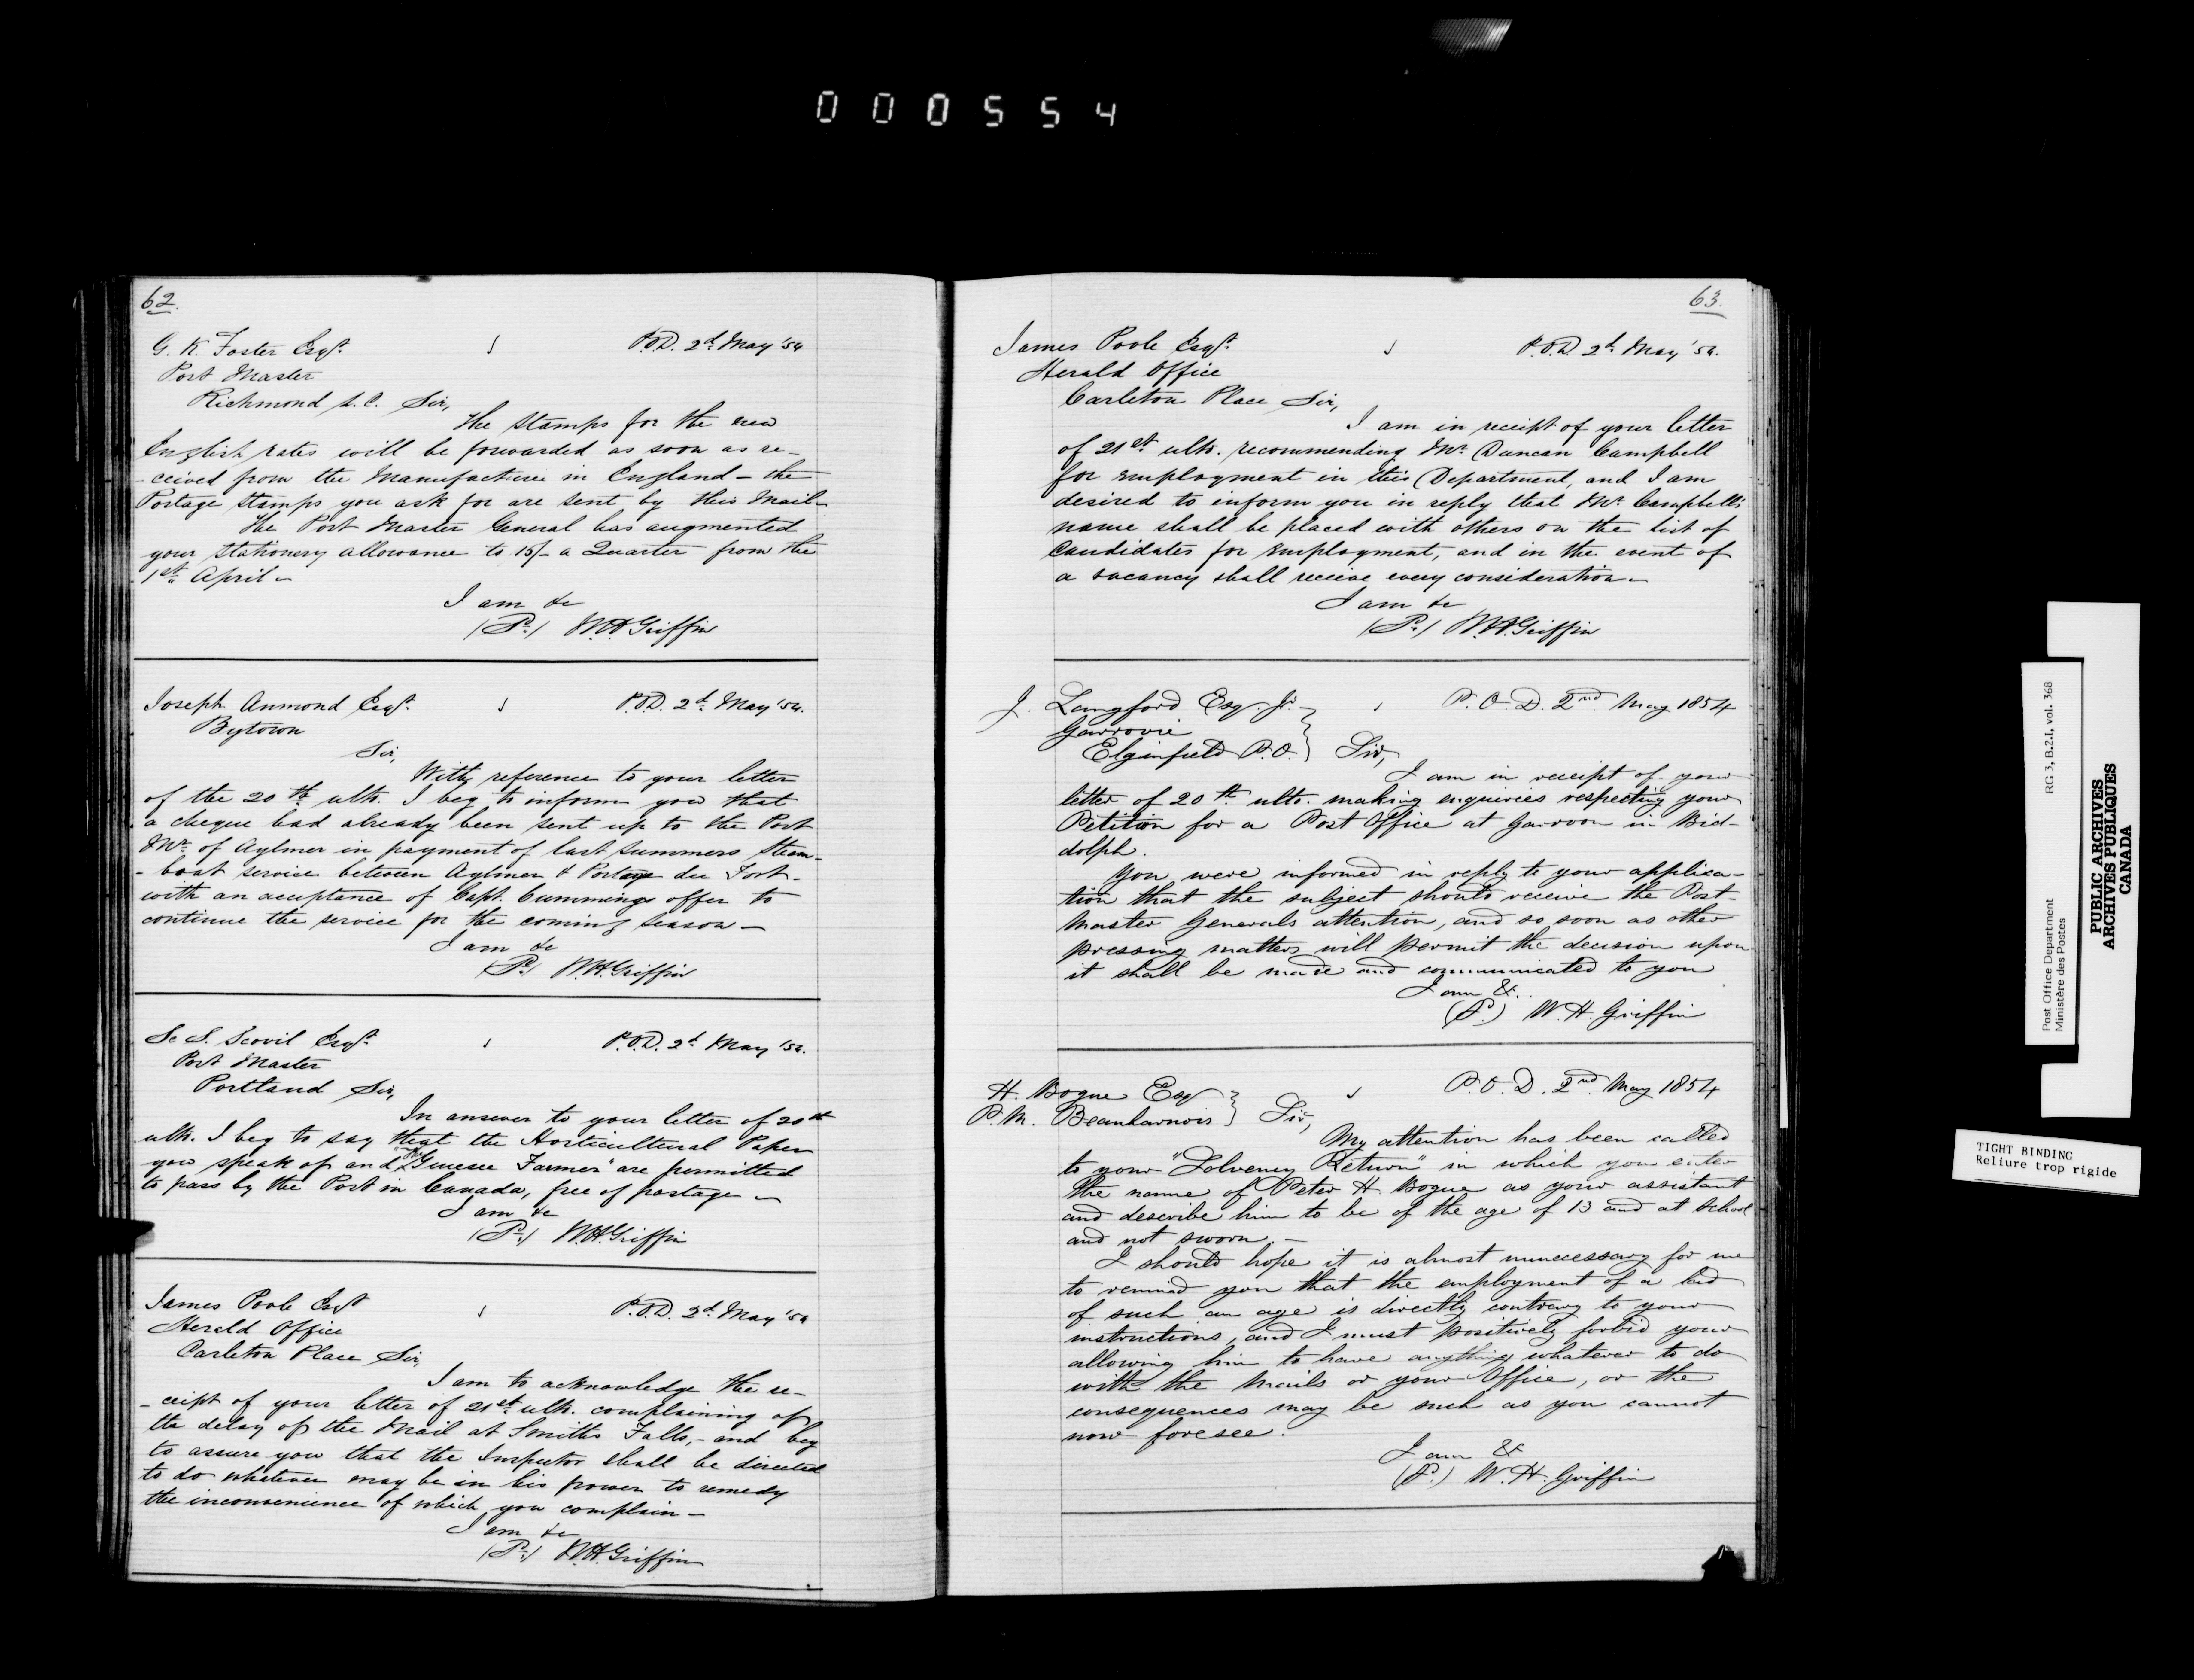 000554
62.
G. K. Foster Esqr.
P.O.D. 2d. May '54
Post Master
Richmond L.C. Sir,
The Stamps for the new
English rates will be forwarded as soon as re-
-ceived from the Manufacturer in England - the
Postage Stamps you ask for are sent by this Mail-
The Post Master General has augmented
your stationery allowance to 15/- a Quarter from the
1st. April -
I am &c
(Sd.) W.H.Griffin
Joseph Aumond Esqr.
P.O.D. 2d. May '54.
Bytown
Sir,
With reference to your letter
of the 20th ulto. I beg to inform you that
a cheque had already been sent up to the Post
Mr. of Aylmer in payment of last summers Steam-
-boat service between Aylmer & Portage du Fort-
with an acceptance of Capt. Cummings offer to
continue the service for the coming season -
I am &c
(Sd.) W.H.Griffin
S. S. Scovil Esqr.
P.O.D. 2d. May '54.
Post Master
Portland Sir,
In answer to your letter of 20th
ulto. I beg to say that the Horticultural Paper
you speak of and "the Genesee Farmer" are permitted
to pass by the Post in Canada, free of postage -
I am &c
(Sd.) W.H.Griffin
James Poole Esqr
P.O.D. 2d. May '54
Herald Office
Carleton Place Sir,
I am to acknowledge the re-
-ceipt of your letter of 21st ulto. complaining of
the delay of the Mail at Smiths Falls, - and beg
to assure you that the Inspector shall be directed
to do whatever may be in his power to remedy
the inconvenience of which you complain -
I am &c
(Sd.) W.H.Griffin
63.
James Poole Esqr.
P.O.D. 2d. May '54.
Herald Office
Carleton Place Sir,
I am in receipt of your letter
of 21st ulto. recommending Mr. Duncan Campbell
for employment in this Department, and I am
desired to inform you in reply that Mr. Campbell's
name shall be placed with others on the list of
Candidates for employment, and in the event of
a vacancy shall receive every consideration -
I am &c
(Sd.) W.H.Griffin
J. Langford Esq. Jr.
P.O.D. 2nd May 1854
Elginfield P.O. Sir,
I am in receipt of your
letter of 20th ulto. making enquiries respecting your
Petition for a Post Office at in Bid-
dolph.
You were informed in reply to your applica-
tion that the subject should receive the Post-
Master Generals attention, and so soon as other
pressing matters will permit the decision upon
it shall be made and communicated to you
I am &c.
(Sd.) W.H. Griffin
H. Bogue Esq
P.O.D. 2nd. May 1854
P.M. Beauharnois Sir,
My attention has been called
to your "Solvency Return" in which you enter
the name of Peter H. Bogue as your assistant
and describe him to be of the age of 13 and at School
and not sworn. -
I should hope it is almost unnecessary for me
to remind you that the employment of a lad
of such an age is directly contrary to your
instructions, and I must positively forbid your
allowing him to have anything whatever to do
with the Mails or your Office, or the
consequences may be such as you cannot
now foresee.
I am &c
(Sd.) W.H. Griffin
Post Office Department
Ministère des Postes
RG 3, B.2.1, vol. 368
PUBLIC ARCHIVES
ARCHIVES PUBLIQUES
CANADA
TIGHT BINDING
Reliure trop rigide